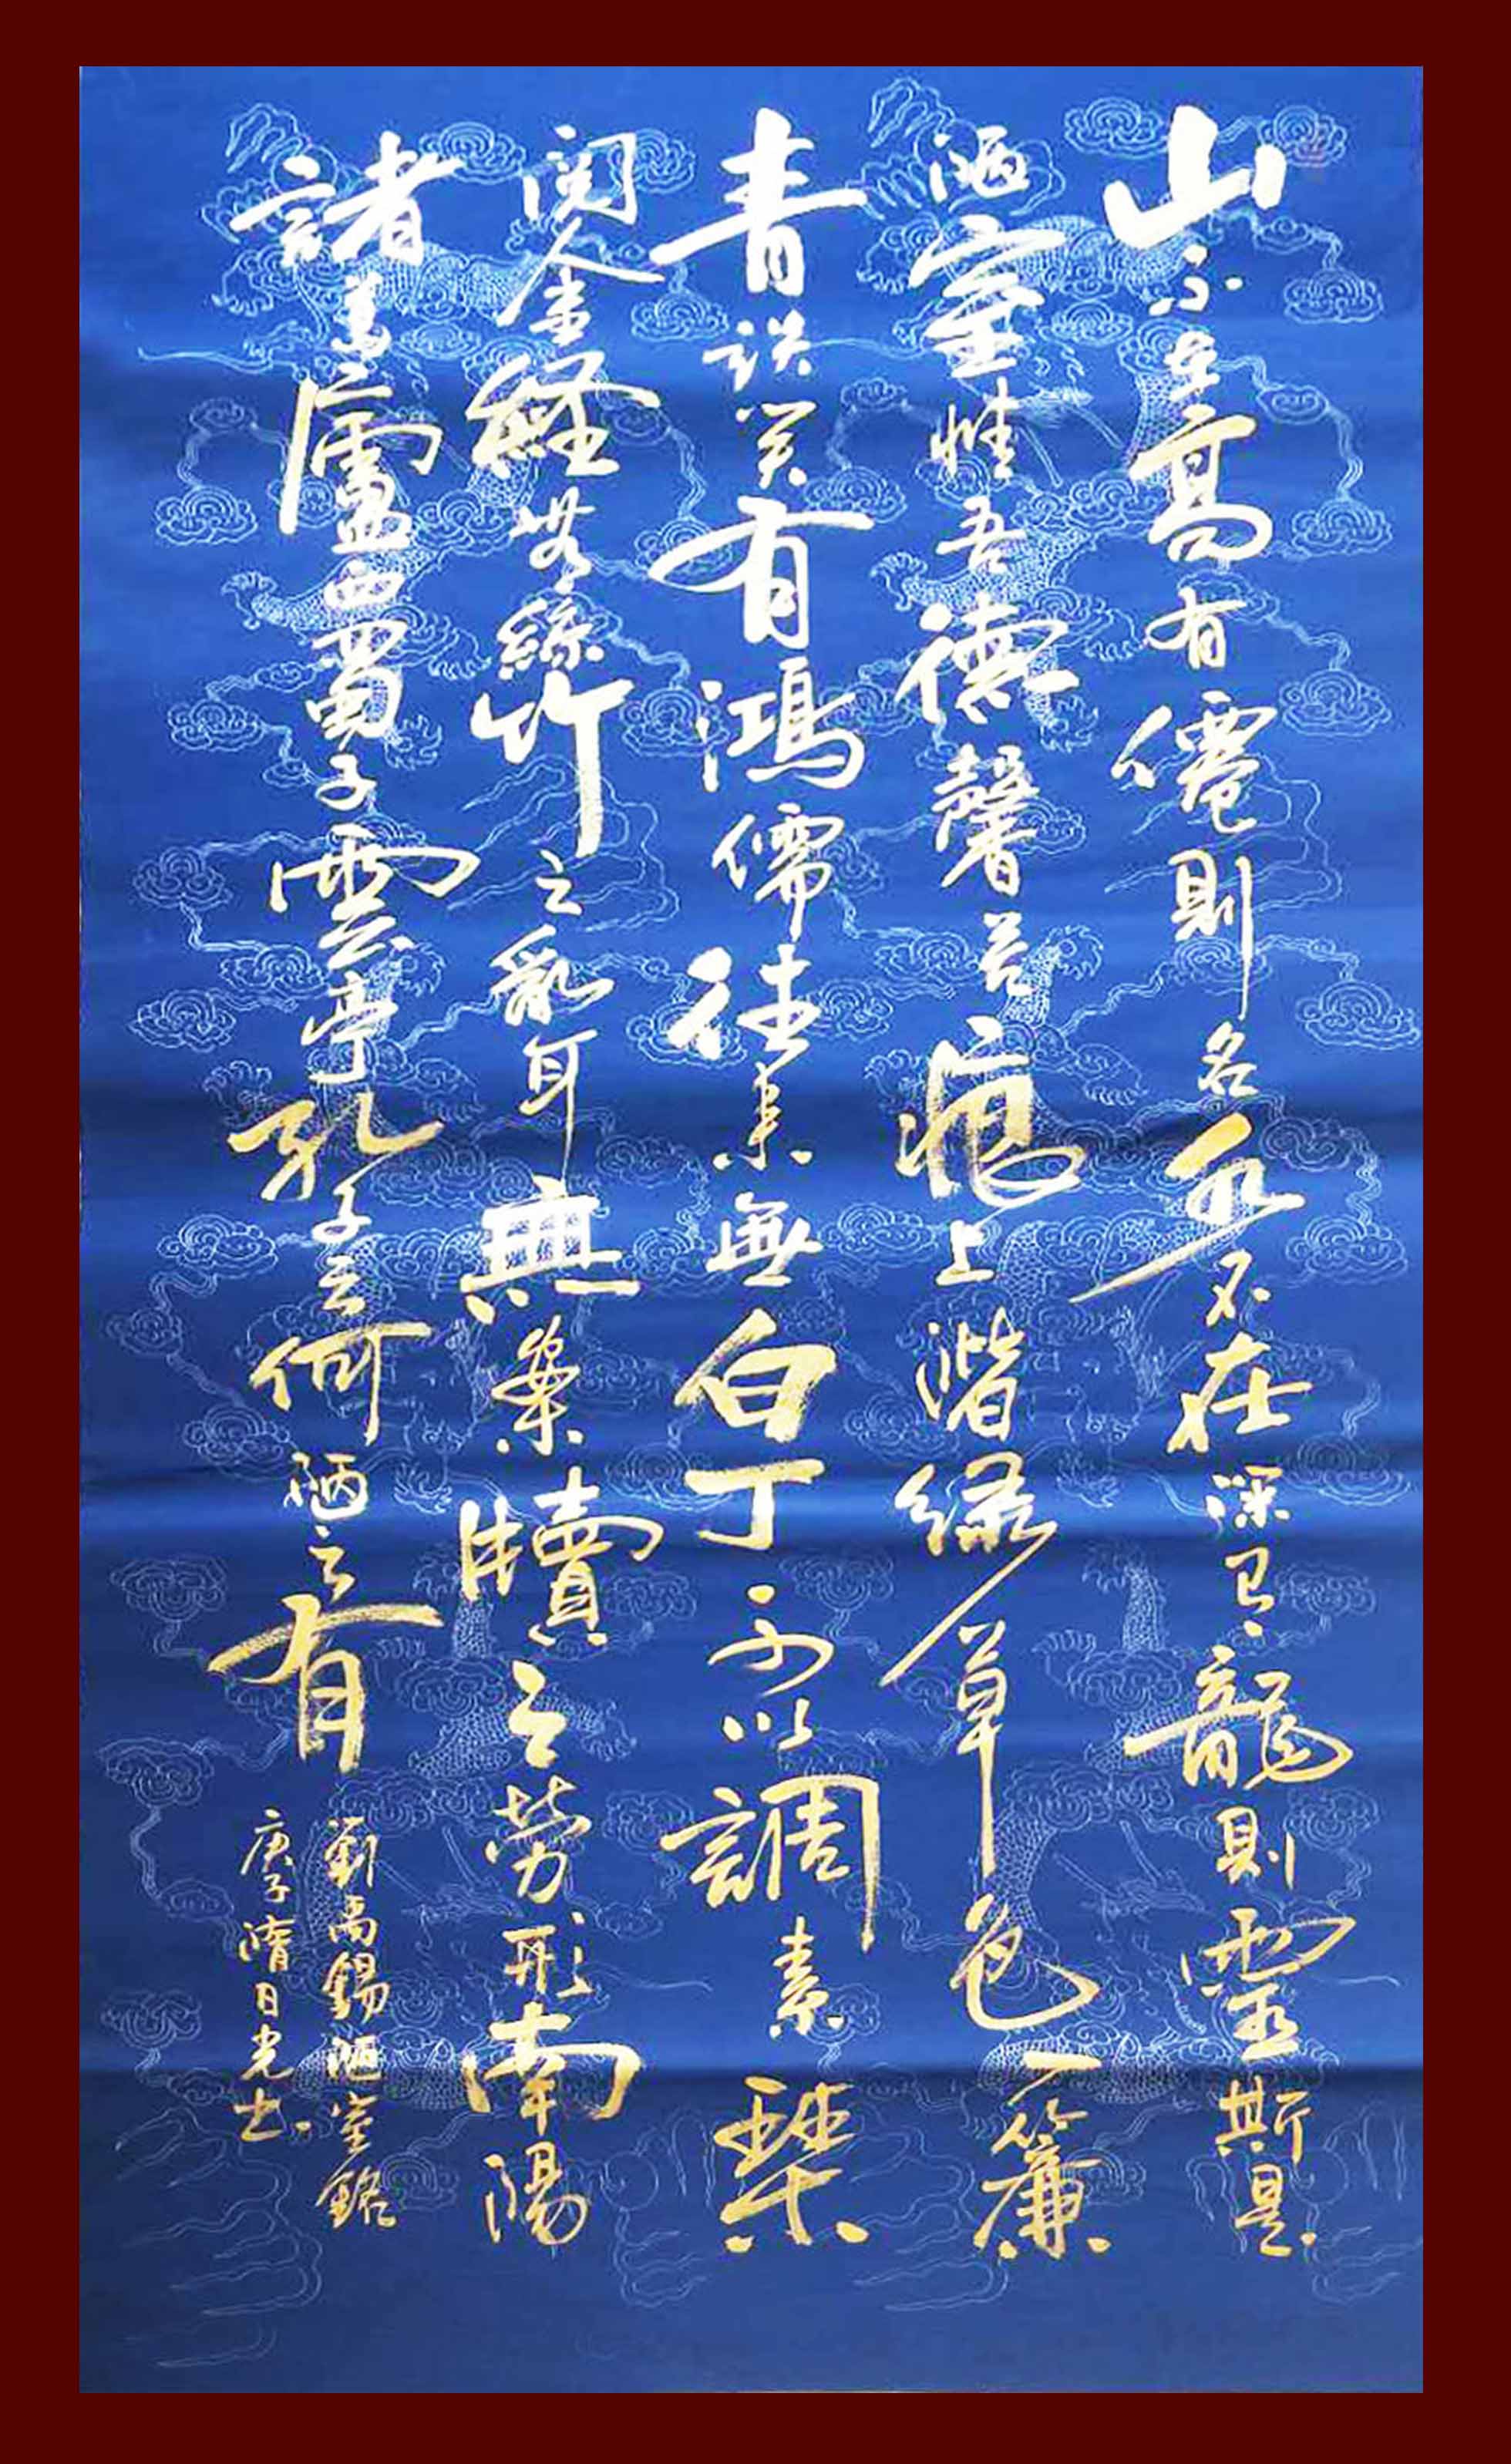 山不在高有僊則名水不在深有龍則靈斯是
陋室惟吾德馨苔痕上階緑草色入簾
青談笑有鴻儒往來無白丁可以調素琴
閱金經無絲竹之亂耳無案牘之勞形南陽
諸葛廬西蜀子雲亭孔子云何陋之有
劉禹錫陋室銘
庚子隋日光书